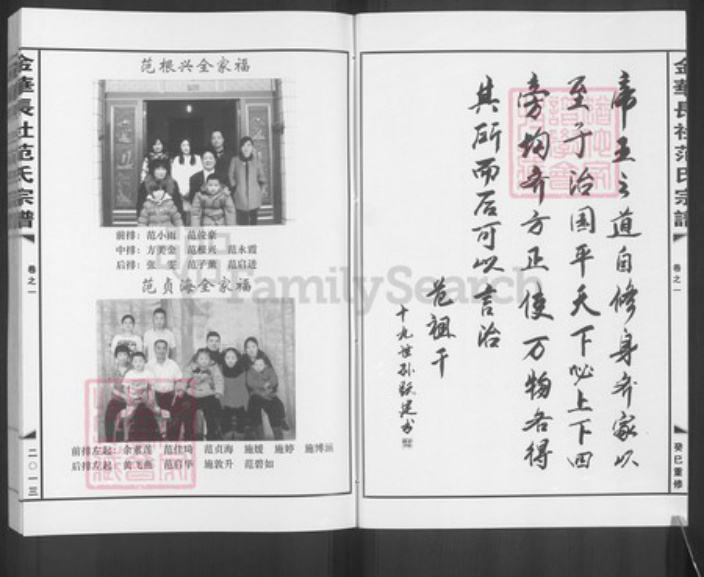 金華長社范氏宗譜
卷之一
二〇一三
范根兴全家福
前排：范小雨 范俊豪
中排：方美金 范根兴 范永霞
后排：张 雯 范子薰 范启进
范贞海全家福
前排左起：余素莲 范佳琦 范贞海 施媛 施婷 施博涵
后排左起：黄飞燕 范启华 施敦升 范碧如
FamilySearch
帝王之道自修身齐家以
至于治国平天下必上下四
旁均齐方正使万物各得
其所而后可以言治
范祖干
十九世孙
金華長社范氏宗譜
卷之一
癸巳重修